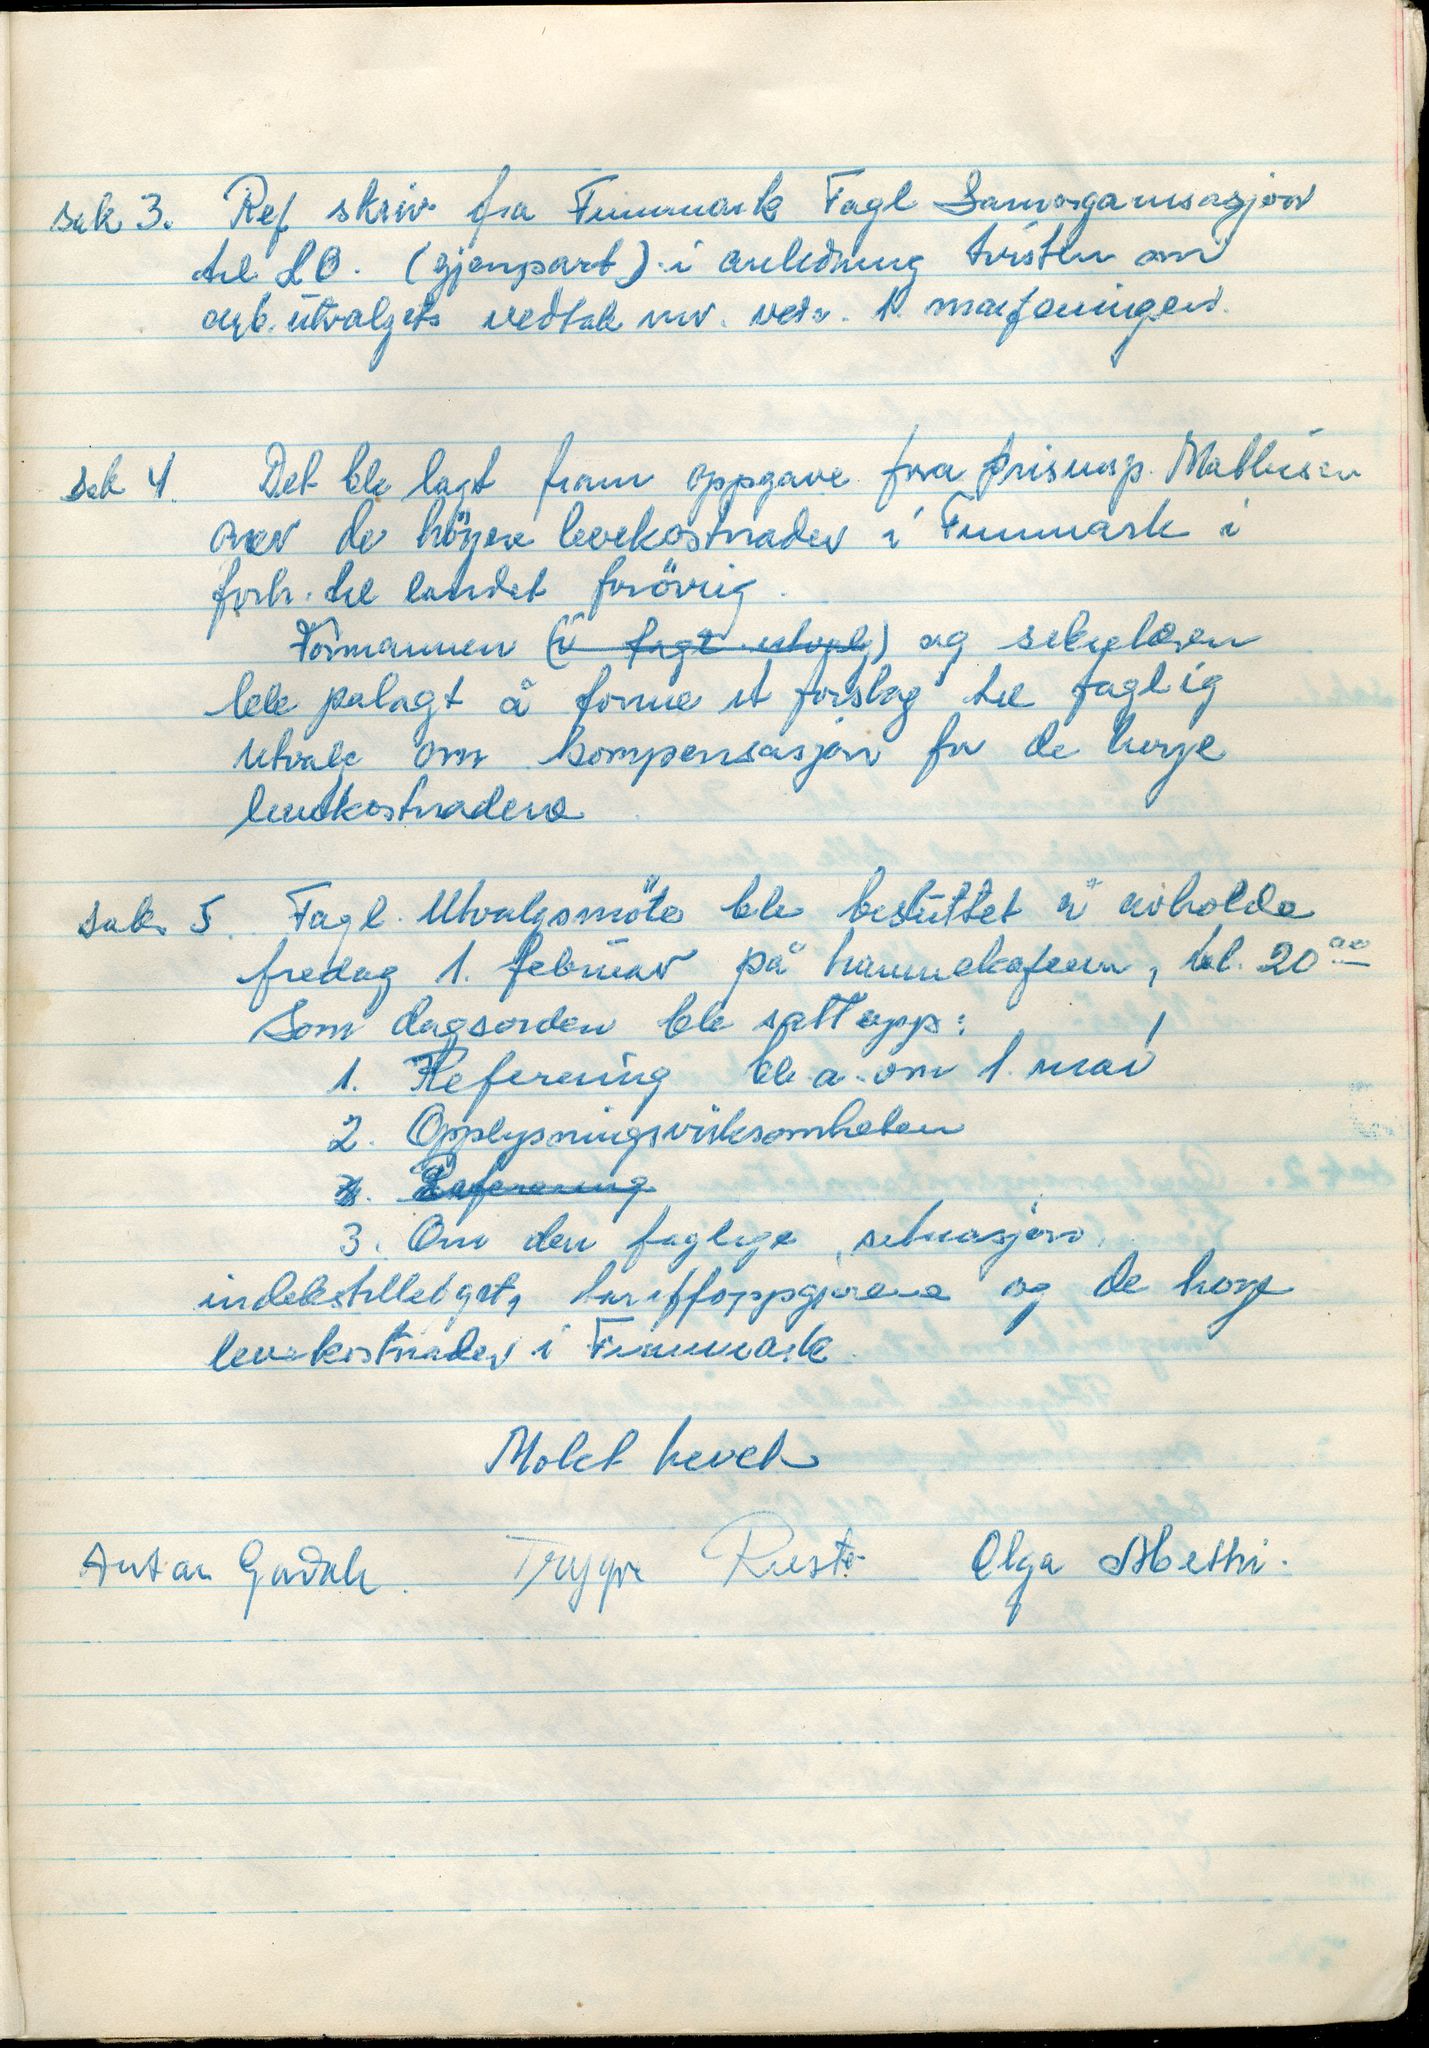 sak 3. Ref skriv fra Finnmark Fagl Samorganisasjon
til LO. (gjenpart) i anledning tvisten om
arb.utvalgets vedtak 1. maifeningen.
sak 4. Det ble lagt fram oppgave fra prisinsp. Mathisen
over de höyere levekostnader i Finnmark i
forh. til landet forövrig.
Formannen (i fagl. utvalg) og sekretæren
ble palagt å forme et forslag til faglig
Utvalg om kompensasjon for de høye
levekostnadene
sak 5. Fagl. Utvalgsmöte ble besluttet å avholde
fredag 1. februar på havnekafeen, kl. 20 00
Som dagsorden ble satt opp:
1. Referering bl a. om 1. mai
2. Opplysningsvirksomheten
3. Referering
3. Om den faglige situasjon,
indekstillegget, tariffoppgjørene og de høye
levekostnader i Finnmark.
Møtet hevet
Anton Trygve Olga